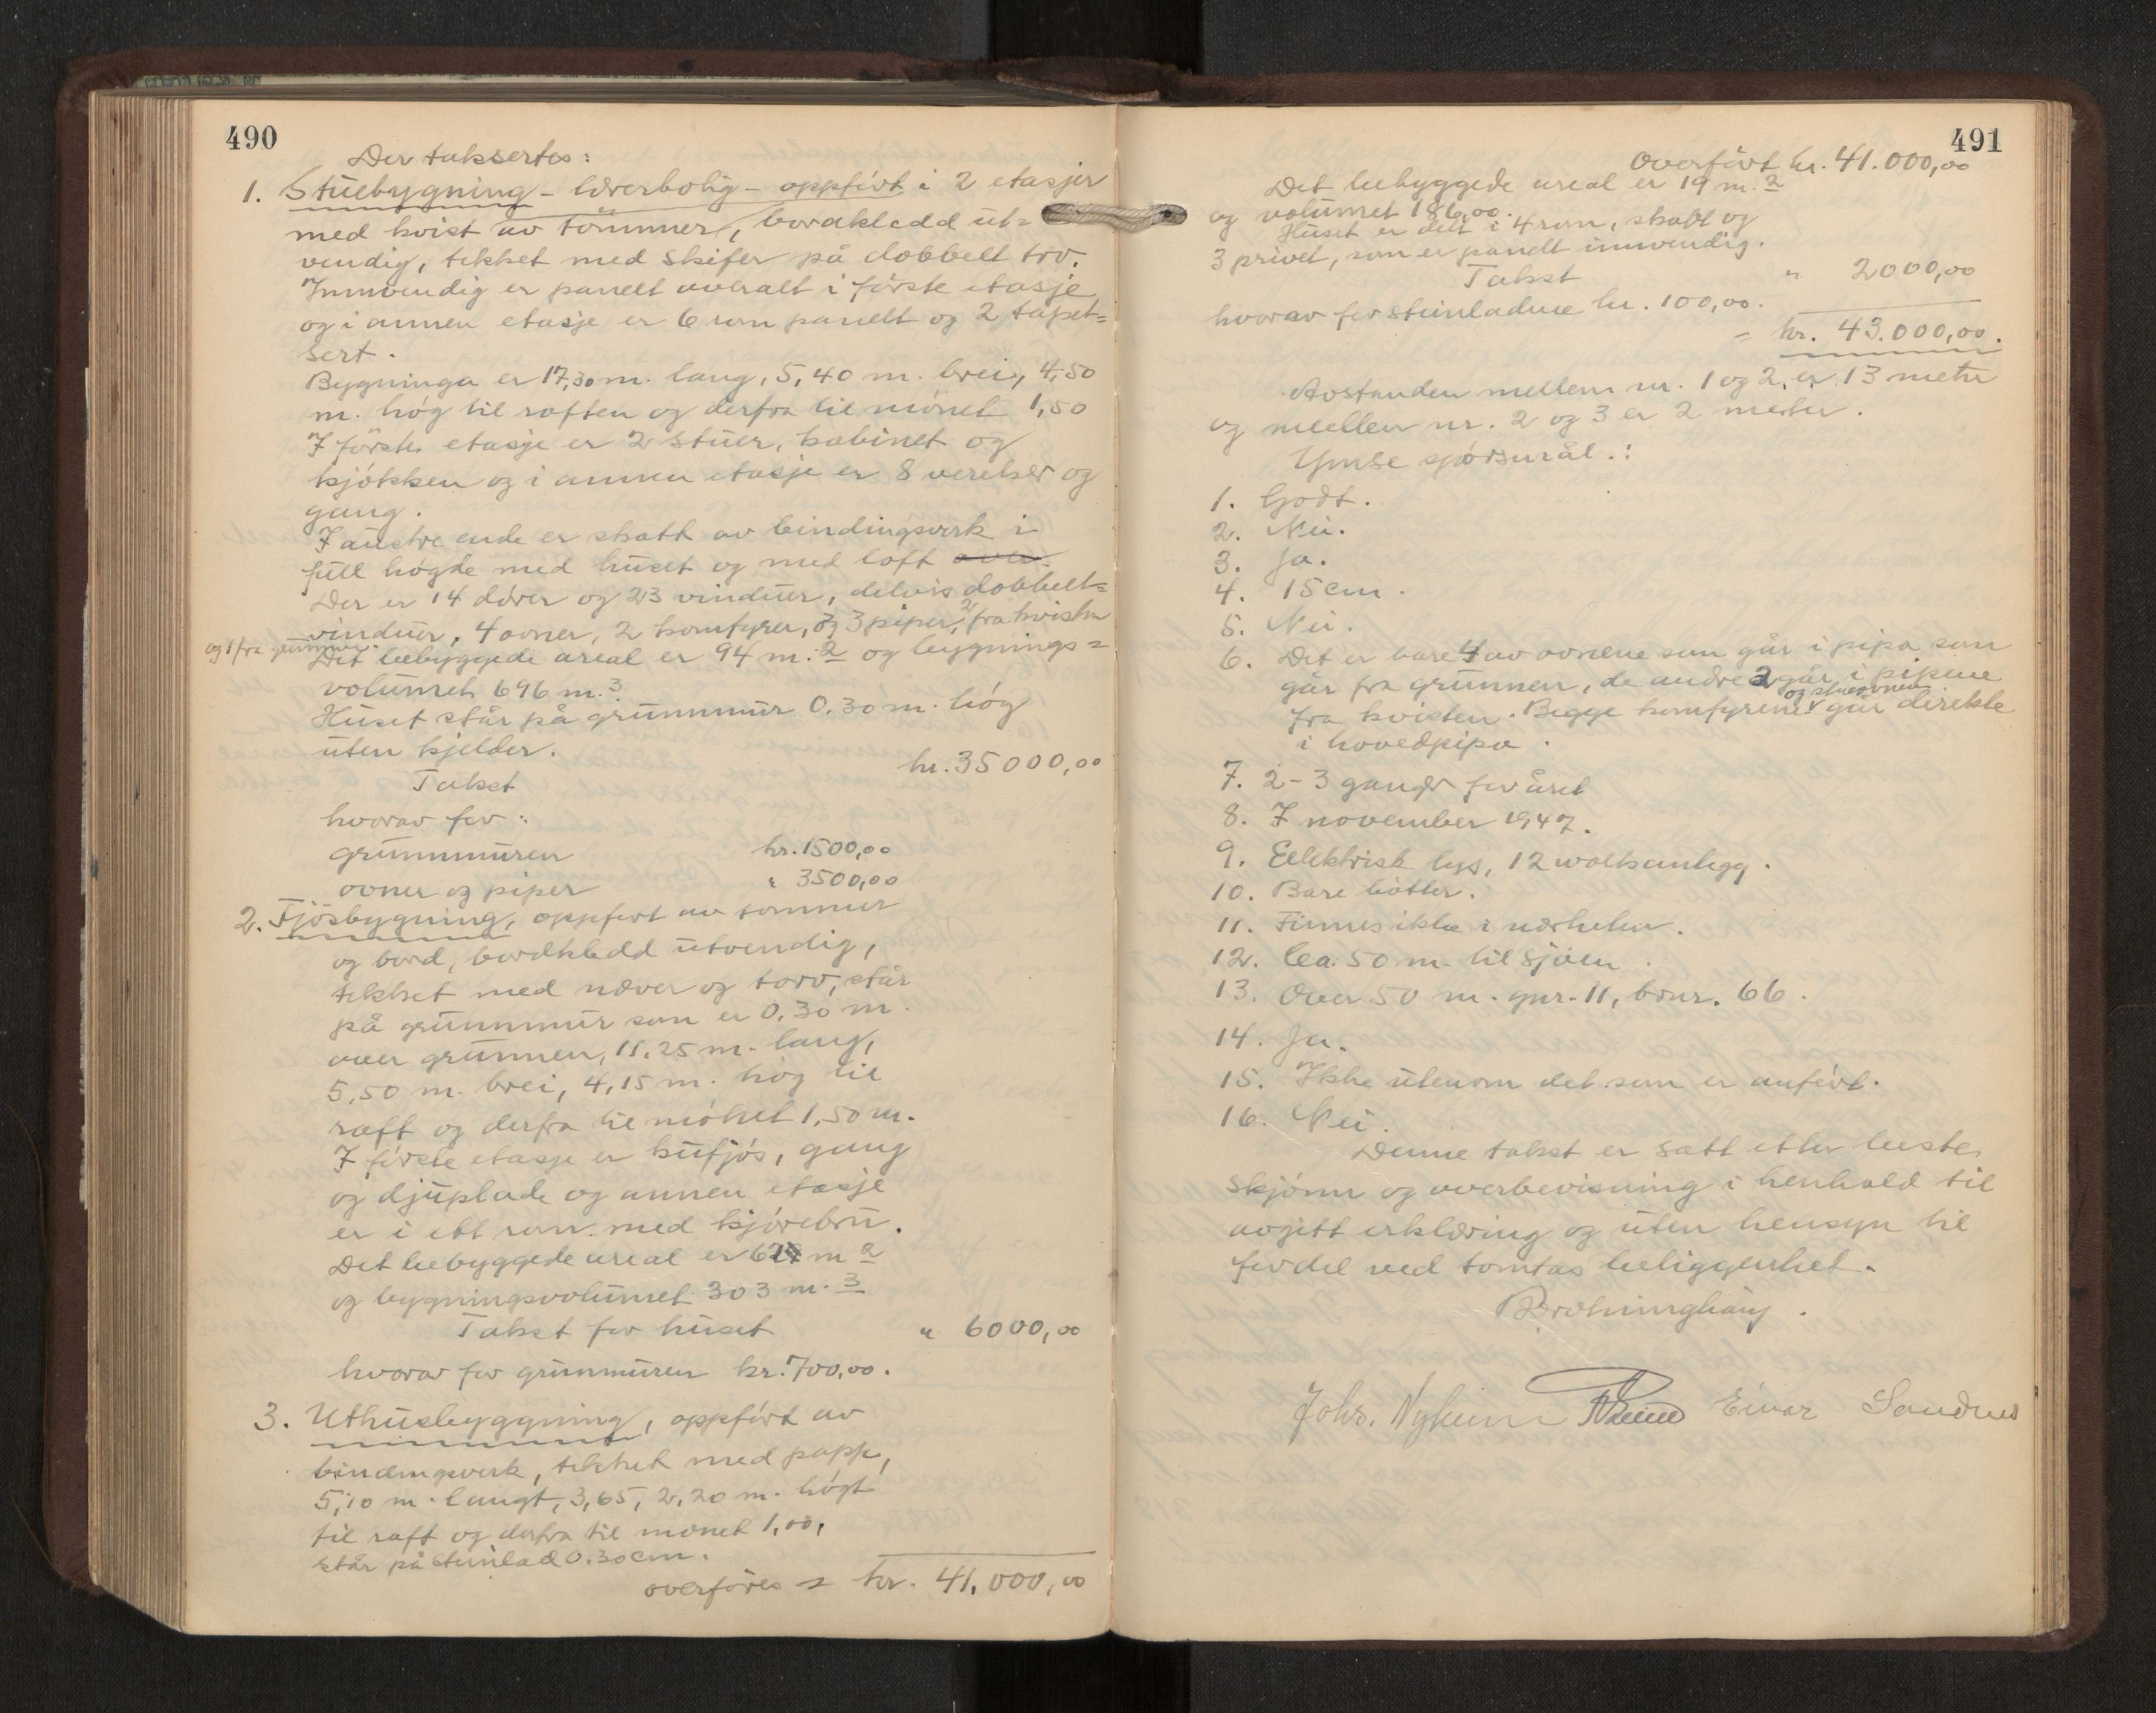 490
Der taksertes:
1. Stuebygning - lærerbolig - oppført i 2 etasjer
med kvist av tömmer, bordkledd ut=
vendig, tekket med skifer på dobbelt tro.
Innvendig er panelt overalt i förste etasje
og i annen etasje er 6 rom panelt og 2 tapet=
sert.
Bygninga er 17,30 m. lang, 5,40 m. brei, 4,50
m. hög til raften og derfra til mönet 1,50
I förste etasje er 2 stuer, kabinet og
kjökken og i annen etasje er 8 verelser og
gang.
I austre ende er skott av bindingsverk i
full högde med huset og med loft over.
Der er 14 dörer og 23 vinduer, delvis dobbelt=
vinduer, 4 ovner, 2 komfyrer, og 3 piper, 2 fra kvisten
og 1 fra grunnen.
Det bebyggede areal er 94 m.2 og bygnings=
volumet 696 m.3
Huset står på grunnmur 0.30 m. hög
uten kjelder.
Takst kr. 35000,00
hvorav for:
grunnmuren kr. 1500,00
ovner og piper " 3500,00
2. Fjösbygning, oppfört av tömmer
og bord, bordkledd utvendig,
tekket med never og torv, står
på grunnmur som er 0,30 m.
over grunnen, 11.25 m. lang,
5,50 m. brei, 4,15 m. hög til
raft og derfra til mönet 1,50 m.
I förste etasje er kufjös, gang
og djuplade og annen etasje
er i ett rom med kjörebru.
Det bebyggede areal er 62 m2
og bygningsvolumet 303 m.3
Takst for huset " 6000,00
hvorav for grunnmuren kr. 700,00.
3. Uthusbyggning, oppfört av
bindingsverk, tekket med papp,
5,10 m. langt, 3,65, 2,20 m. högt
til raft og derfra til mönet 1,00,
står på steinlad 0.30 cm.
overföres = kr. 41.000,00
491
Overfört kr. 41.000,00
Det bebyggede areal er 19 m.2
og volumet 186,00.
Huset er delt i 4 rom, skott og
3 privet, som er panelt innvendig.
Takst " 2000,00
hvorav for steinladene kr. 100,00.
= kr. 43.000,00.
Avstanden mellem nr. 1 og 2 er 13 meter
og mellem nr. 2 og 3 er 2 meter.
Ymse spörsmål:
1. Godt.
2. Nei.
3. Ja.
4. 15 cm.
5. Nei.
6. Det er bare 4 av ovnene som går i pipa som
går fra grunnen, de andre 2 går i pipene
fra kvisten. Begge komfyrene og stueovnen går direkte
i hovedpipa.
7. 2-3 ganger for året
8. I november 1947.
9. Eelektrisk lys, 12 woltsanlegg.
10. Bare bötter.
11. Finnes ikke i nærheten.
12. Ca. 50 m. til sjöen.
13. Over 50 m. gnr. 11, bnr. 66.
14. Ja.
15. Ikke utenom det som er anfört.
16. Nei.
Denne takst er satt etter beste
skjönn og overbevisning i henhold til
avgitt erklæring og uten hensyn til
fordel ved tomtas beliggenhet.
Johs. Nyheim Einar Sandnes